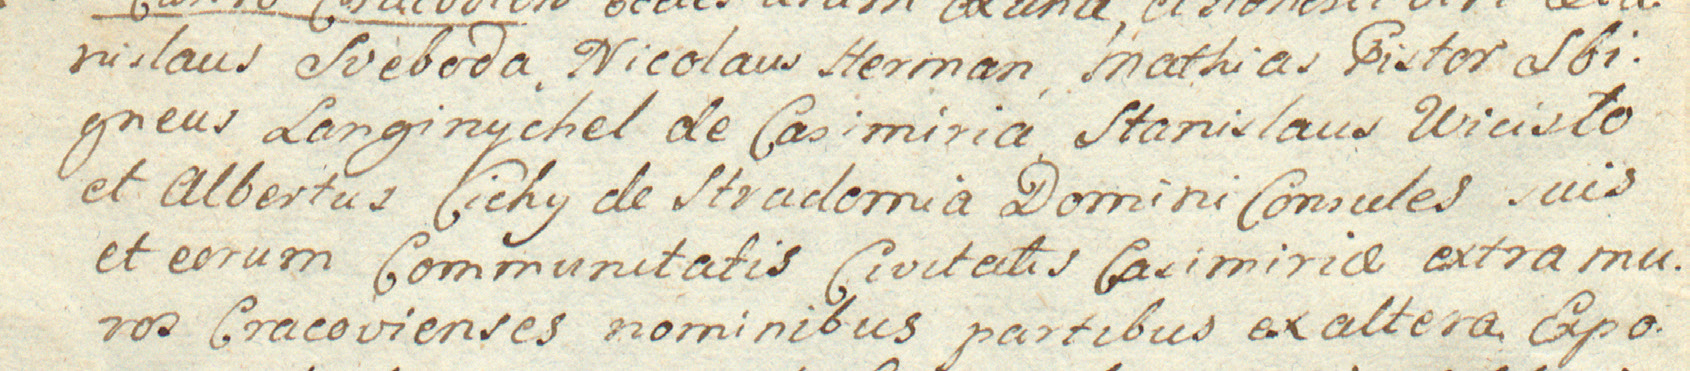 ex una,
nislaus Sveboda, Nicolaus Herman, Mathias Pistor Sbi.
gneus Langinychel de Casimiria, Stanislaus Wicisto
et Albertus Cichy de Stradomia Domini Consules suis
et eorum Communitatis Civitatis Casimiriæ extra mu.
ros Cracovienses nominibus partibus ex altera. Expo